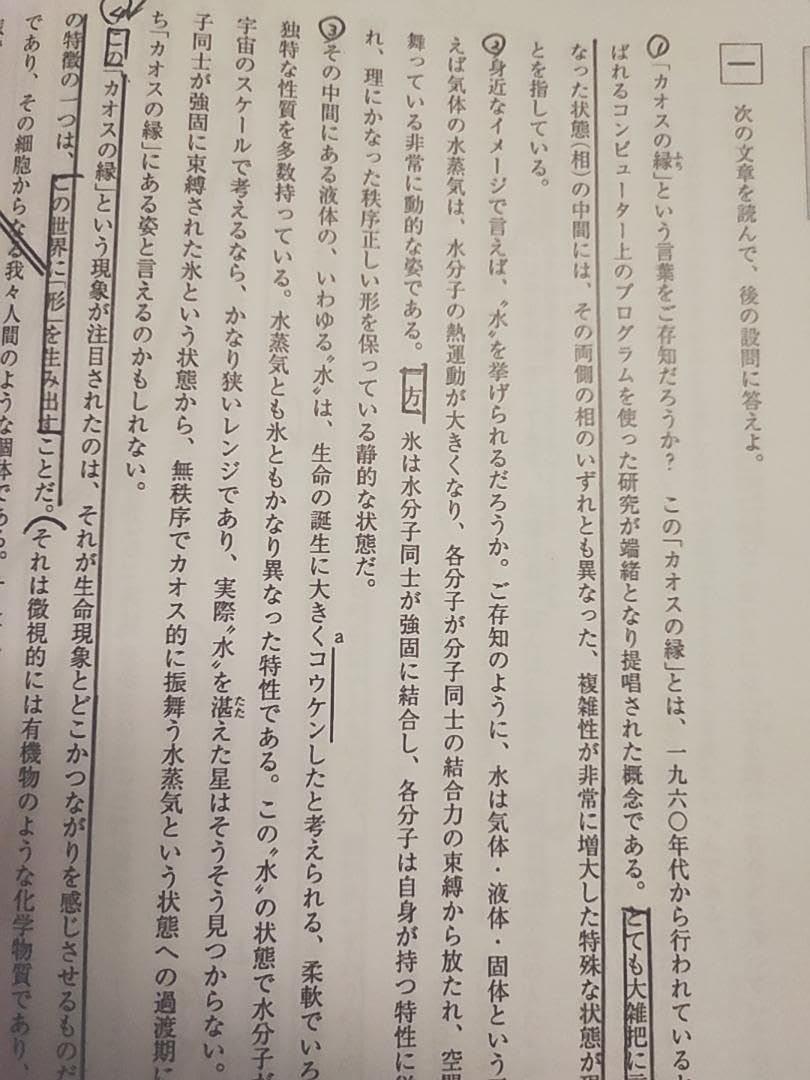 一
次の文章を読んで、後の設問に答えよ。
① 「カオスの縁」という言葉をご存知だろうか? この「カオスの縁」とは、一九六〇年代から行われていると
ふち
ばれるコンピューター上のプログラムを使った研究が端緒となり提唱された概念である。とても大雑把に
なった状態(相)の中間には、その両側の相のいずれとも異なった、複雑性が非常に増大した特殊な状態が
とを指している。
② 身近なイメージで言えば、〝水〟を挙げられるだろうか。ご存知のように、水は気体・液体・固体という
えば気体の水蒸気は、水分子の熱運動が大きくなり、各分子が分子同士の結合力の束縛から放たれ、空間
舞っている非常に動的な姿である。一方、氷は水分子同士が強固に結合し、各分子は自身が持つ特性に
れ、理にかなった秩序正しい形を保っている静的な状態だ。
③ その中間にある液体の、いわゆる〝水〟は、生命の誕生に大きくコウケンしたと考えられる、柔軟でいろ
a
独特な性質を多数持っている。水蒸気とも氷ともかなり異なった特性である。この〝水〟の状態で水分子が
宇宙のスケールで考えるなら、かなり狭いレンジであり、実際〝水〟を湛えた星はそうそう見つからない。
たた
子同士が強固に束縛された氷という状態から、無秩序でカオス的に振舞う水蒸気という状態への過渡期に
ち「カオスの縁」にある姿と言えるのかもしれない。
④ この「カオスの縁」という現象が注目されたのは、それが生命現象とどこかつながりを感じさせるものだ
の特徴の一つは、この世界に「形」を生み出すことだ。それは微視的には有機物のような化学物質であり、
であり、その細胞からなる我々人間のような個体である。